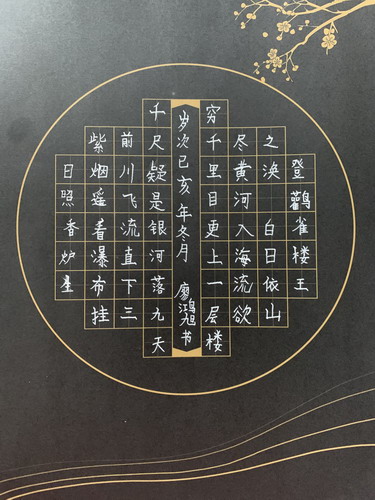 登鸛雀楼王
之涣 白日依山
尽黄河入海流欲
穷千里目更上一层楼
日照香炉星
紫烟遥着瀑布挂
前川飞流直下三
千尺疑是银河落九天
岁次己亥年冬月 廖鸿旭书